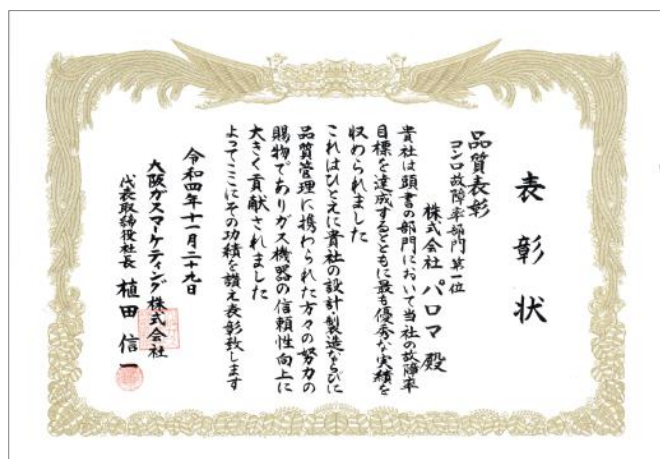 表彰状
品質表彰
コンロ故障率部門 第一位
株式会社 パロマ 殿
貴社は頭書の部門において当社の故障率
目標を達成するとともに最も優秀な実績を
収められました
これはひとえに貴社の設計・製造ならびに
品質管理に携わられた方々の努力の
賜物でありガス機器の信頼性向上に
大きく貢献されました
よってここにその功績を讃え表彰致します
令和四年十一月二十九日
大阪ガスマーケティング株式会社
代表取締役社長 植田 信一